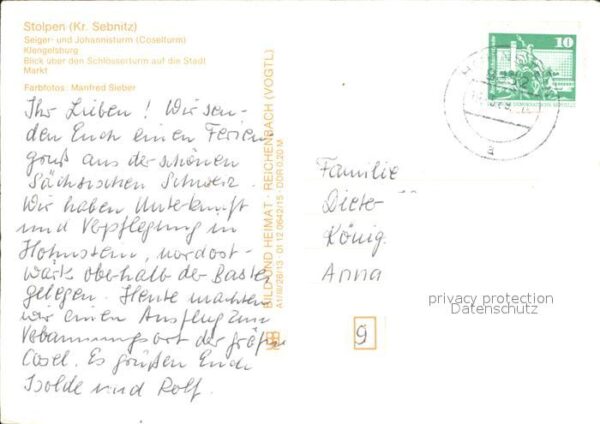 Stolpen (Kr. Sebnitz)
Seiger- und Johannisturm (Coselturm)
Klengelsburg
Blick über den Schlösserturm auf die Stadt
Markt
Farbfotos: Manfred Sieber
Ihr Lieben! Wir sen-
den Euch einen Ferien
gruß aus der schönen
Sächsischen Schweiz.
Wir haben Unterkunft
und Verpflegung in
Hohnstein, nordost-
wärts oberhalb der Bastei
gelegen. Heute machten
wir einen Ausflug zum
Verbannungsort der gräfin
Cosel. Es grüßen Euch
Isolde und Rolf.
BILD UND HEIMAT · REICHENBACH (VOGTL)
A1/B/26/13 01 12 0642/15 · DDR 0,20 M
10
a
Familie
Dieter
König
Anna
privacy protection
Datenschutz
9